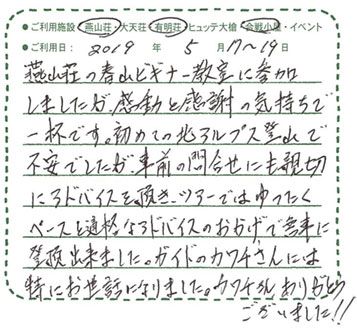 ●ご利用施設 燕山荘・大天荘・有明荘・ヒュッテ大槍・合戦小屋・イベント
●ご利用日: 2019 年 5 月17〜19日
燕山荘の春山ビギナー教室に参加
しましたが、感動と感謝の気持ちで
一杯です。初めての北アルプス登山で
不安でしたが、事前の問合せにも親切
にアドバイスを頂き、ツアーではゆったく
ペースと適格なアドバイスのおかげで無事に
登頂出来ました。ガイドのカワチさんには
特にお世話になりました。カワチさん ありがとう
ございました!!